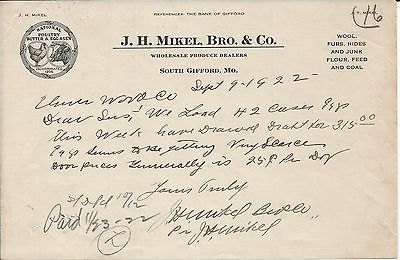 J. H. MIKEL
REFERENCES: THE BANK OF GIFFORD
46
J. H. MIKEL, BRO. & CO.
WHOLESALE PRODUCE DEALERS
SOUTH GIFFORD, MO.
NATIONAL
POULTRY
BUTTER & EGG ASS'N
INCORPORATED
1906
WOOL,
FURS, HIDES
AND JUNK
FLOUR, FEED
AND COAL
Sept 9-1922-
Elmer & Co
Dear Sirs: We Load 42 Cases Eggs
This Week have Drawed Draft for 315.00
Eggs Seems to Be getting Very Scarce
Door prices Generally is 25¢ Pr Doz
Yours Truly
J H Mikel Bro & Co
Paid 11/23-22
Pr J. H. Mikel